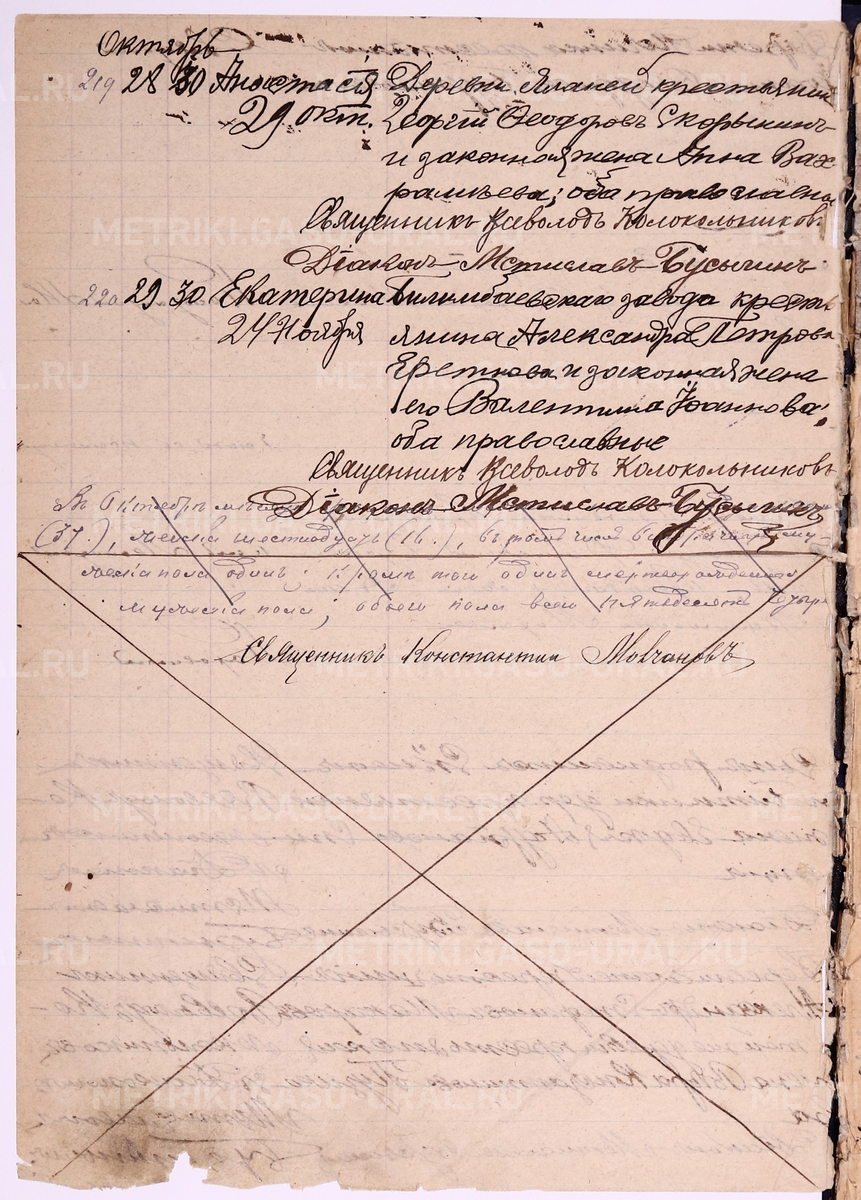 Октябрь
219 28 30 Анастасія Деревни Яланей крестьянин
29 окт. Георгій Ѳеодоровъ Скорынинъ
и законная жена Анна Вах
рамѣева; оба православны
Священникъ Всеволодъ Колокольниковъ
Діаконъ Мстиславъ Бусыгинъ
220 29 30 Екатерина Билимбаевскаго завода кресть
24 Ноября янина Александра Петрова
и законная жена
его Валентина Іоаннова;
оба православные
Священникъ Всеволодъ Колокольниковъ
Діаконъ Мстиславъ Бусыгинъ
Въ Октябрѣ мѣсяцѣ
(37.), женска шестнадцать (16.), въ томъ числѣ
женска пола одинъ; кромѣ того одинъ мертворожденный
мужеска пола; обоего пола всего пятьдесятъ четыре
Священникъ Константин Молчановъ